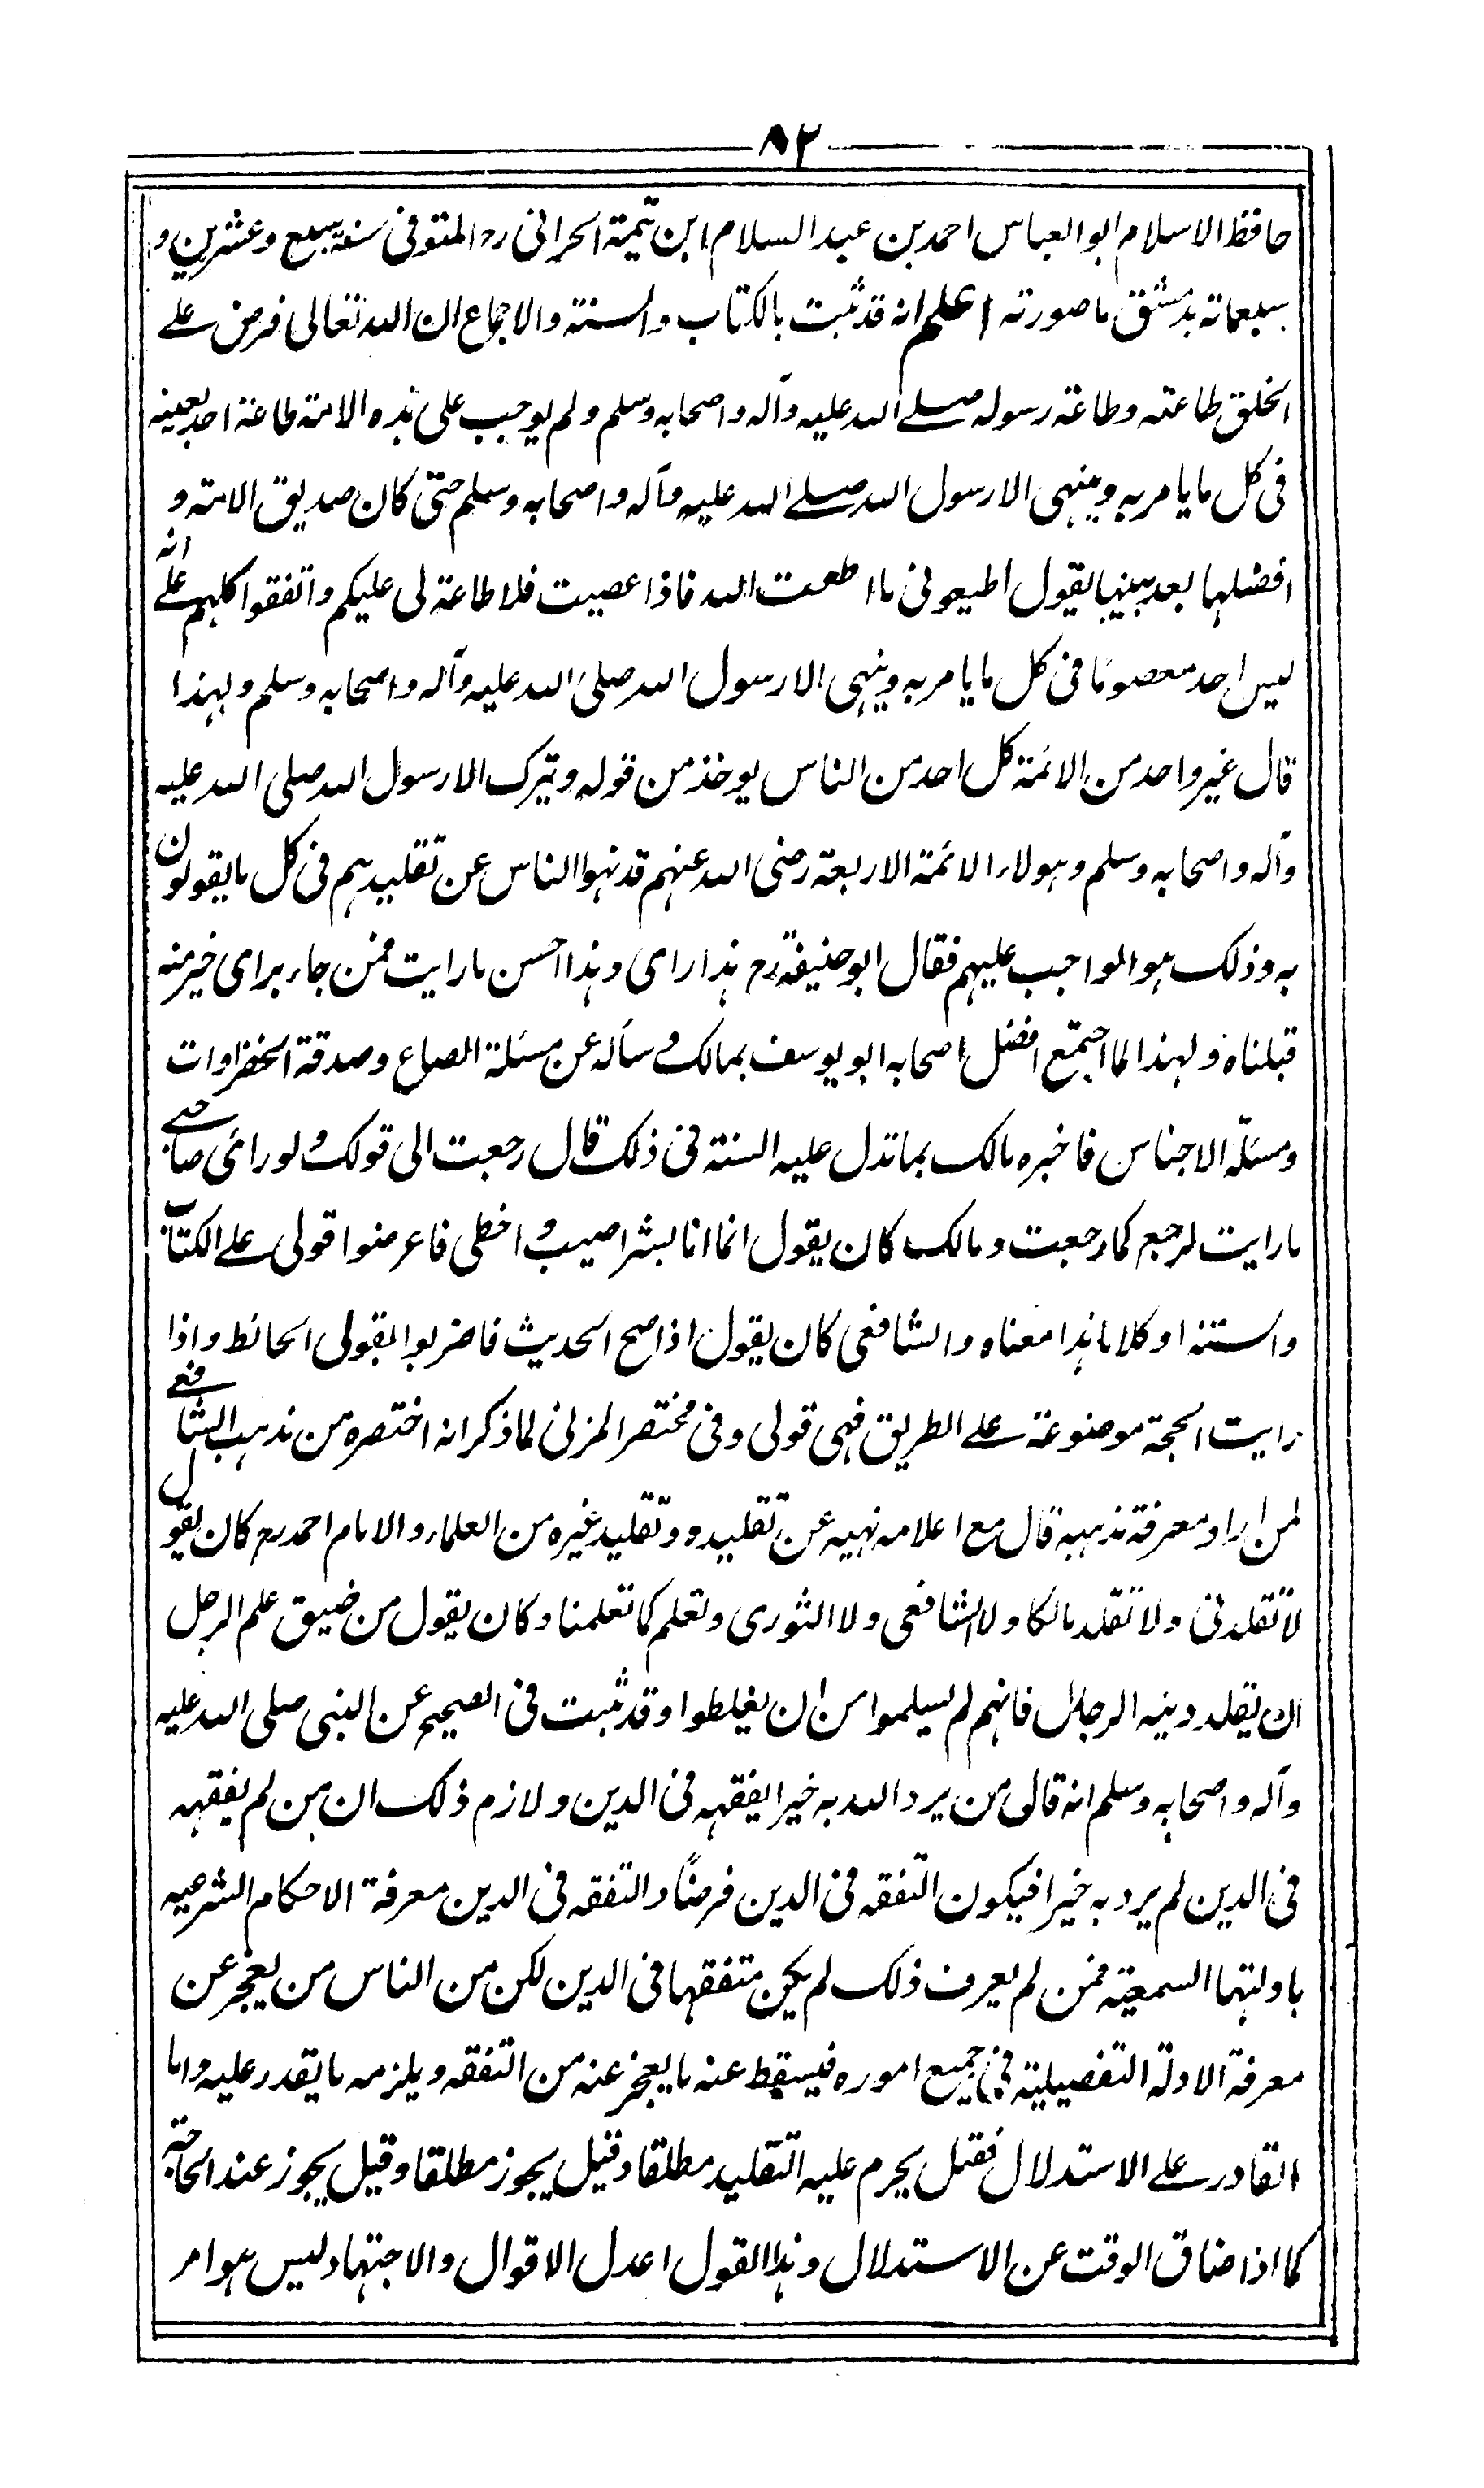 ٨٢
حافظ الاسلام ابو العباس احمد بن عبد السلام ابن تيمية الحراني رح المتوفى سنة سبع وعشرين و
سبعمائة بدمشق ما صورته اعلم انه قد ثبت بالكتاب والسنة والاجماع ان الله تعالى فرض على
الخلق طاعته وطاعة رسوله صلى الله عليه وآله واصحابه وسلم ولم يوجب على هذه الامة طاعة احد بعينه
في كل ما يامر به وينهى الا رسول الله صلى الله عليه وآله واصحابه وسلم حتى كان صديق الامة و
افضلها بعد نبيها يقول اطيعوني ما اطعت الله فاذا عصيت فلا طاعة لي عليكم واتفقوا كلهم على انه
ليس احد معصوما في كل ما يامر به وينهى الا رسول الله صلى الله عليه وآله واصحابه وسلم ولهذا
قال غير واحد من الائمة كل احد من الناس يوخذ من قوله ويترك الا رسول الله صلى الله عليه
وآله واصحابه وسلم وهولاء الائمة الاربعة رضي الله عنهم قد نهوا الناس عن تقليدهم في كل ما يقولون
به وذلك هو الواجب عليهم فقال ابو حنيفة رح هذا راى وهذا احسن ما رايت فمن جاء براى خير منه
قبلناه ولهذا لما اجتمع افضل اصحابه ابو يوسف بمالك وسأله عن مسئلة الصاع وصدقة الخضراوات
ومسئلة الاجناس فاخبره مالك بما تدل عليه السنة في ذلك قال رجعت الى قولك ولو رأى صاحبي
ما رايت لرجع كما رجعت ومالك كان يقول انما انا بشر اصيب و اخطى فاعرضوا قولى على الكتاب
والسنة او كلاما هذا معناه والشافعي كان يقول اذا صح الحديث فاضربوا بقولى الحائط واذا
رايت الحجة موضوعة على الطريق فهي قولى وفي مختصر المزني لما ذكر انه اختصره من مذهب الشافعي
لمن اراد معرفة مذهبه قال مع اعلامه نهيه عن تقليده وتقليد غيره من العلماء والامام احمد رح كان يقول
لا تقلدني ولا تقلد مالكا ولا الشافعي ولا الثوري وتعلم كما تعلمنا وكان يقول من ضيق علم الرجل
ان يقلد دينه الرجال فانهم لم يسلموا من ان يغلطوا وقد ثبت في الصحيح عن النبي صلى الله عليه
وآله واصحابه وسلم انه قال من يرد الله به خيرا يفقهه في الدين ولازم ذلك ان من لم يفقهه
في الدين لم يرد به خيرا فيكون التفقه في الدين فرضاً والتفقه في الدين معرفة الاحكام الشرعيه
بادلتها السمعية فمن لم يعرف ذلك لم يكن متفقها في الدين لكن من الناس من يعجز عن
معرفة الادلة التفصيلية في جميع اموره فيسقط عنه ما يعجز عنه من التفقه ويلزمه ما يقدر عليه واما
القادر على الاستدلال فقيل يحرم عليه التقليد مطلقا وقيل يجوز مطلقا وقيل يجوز عند الحاجة
كما اذا ضاق الوقت عن الاستدلال وهذا القول اعدل الاقوال والاجتهاد ليس هو امر